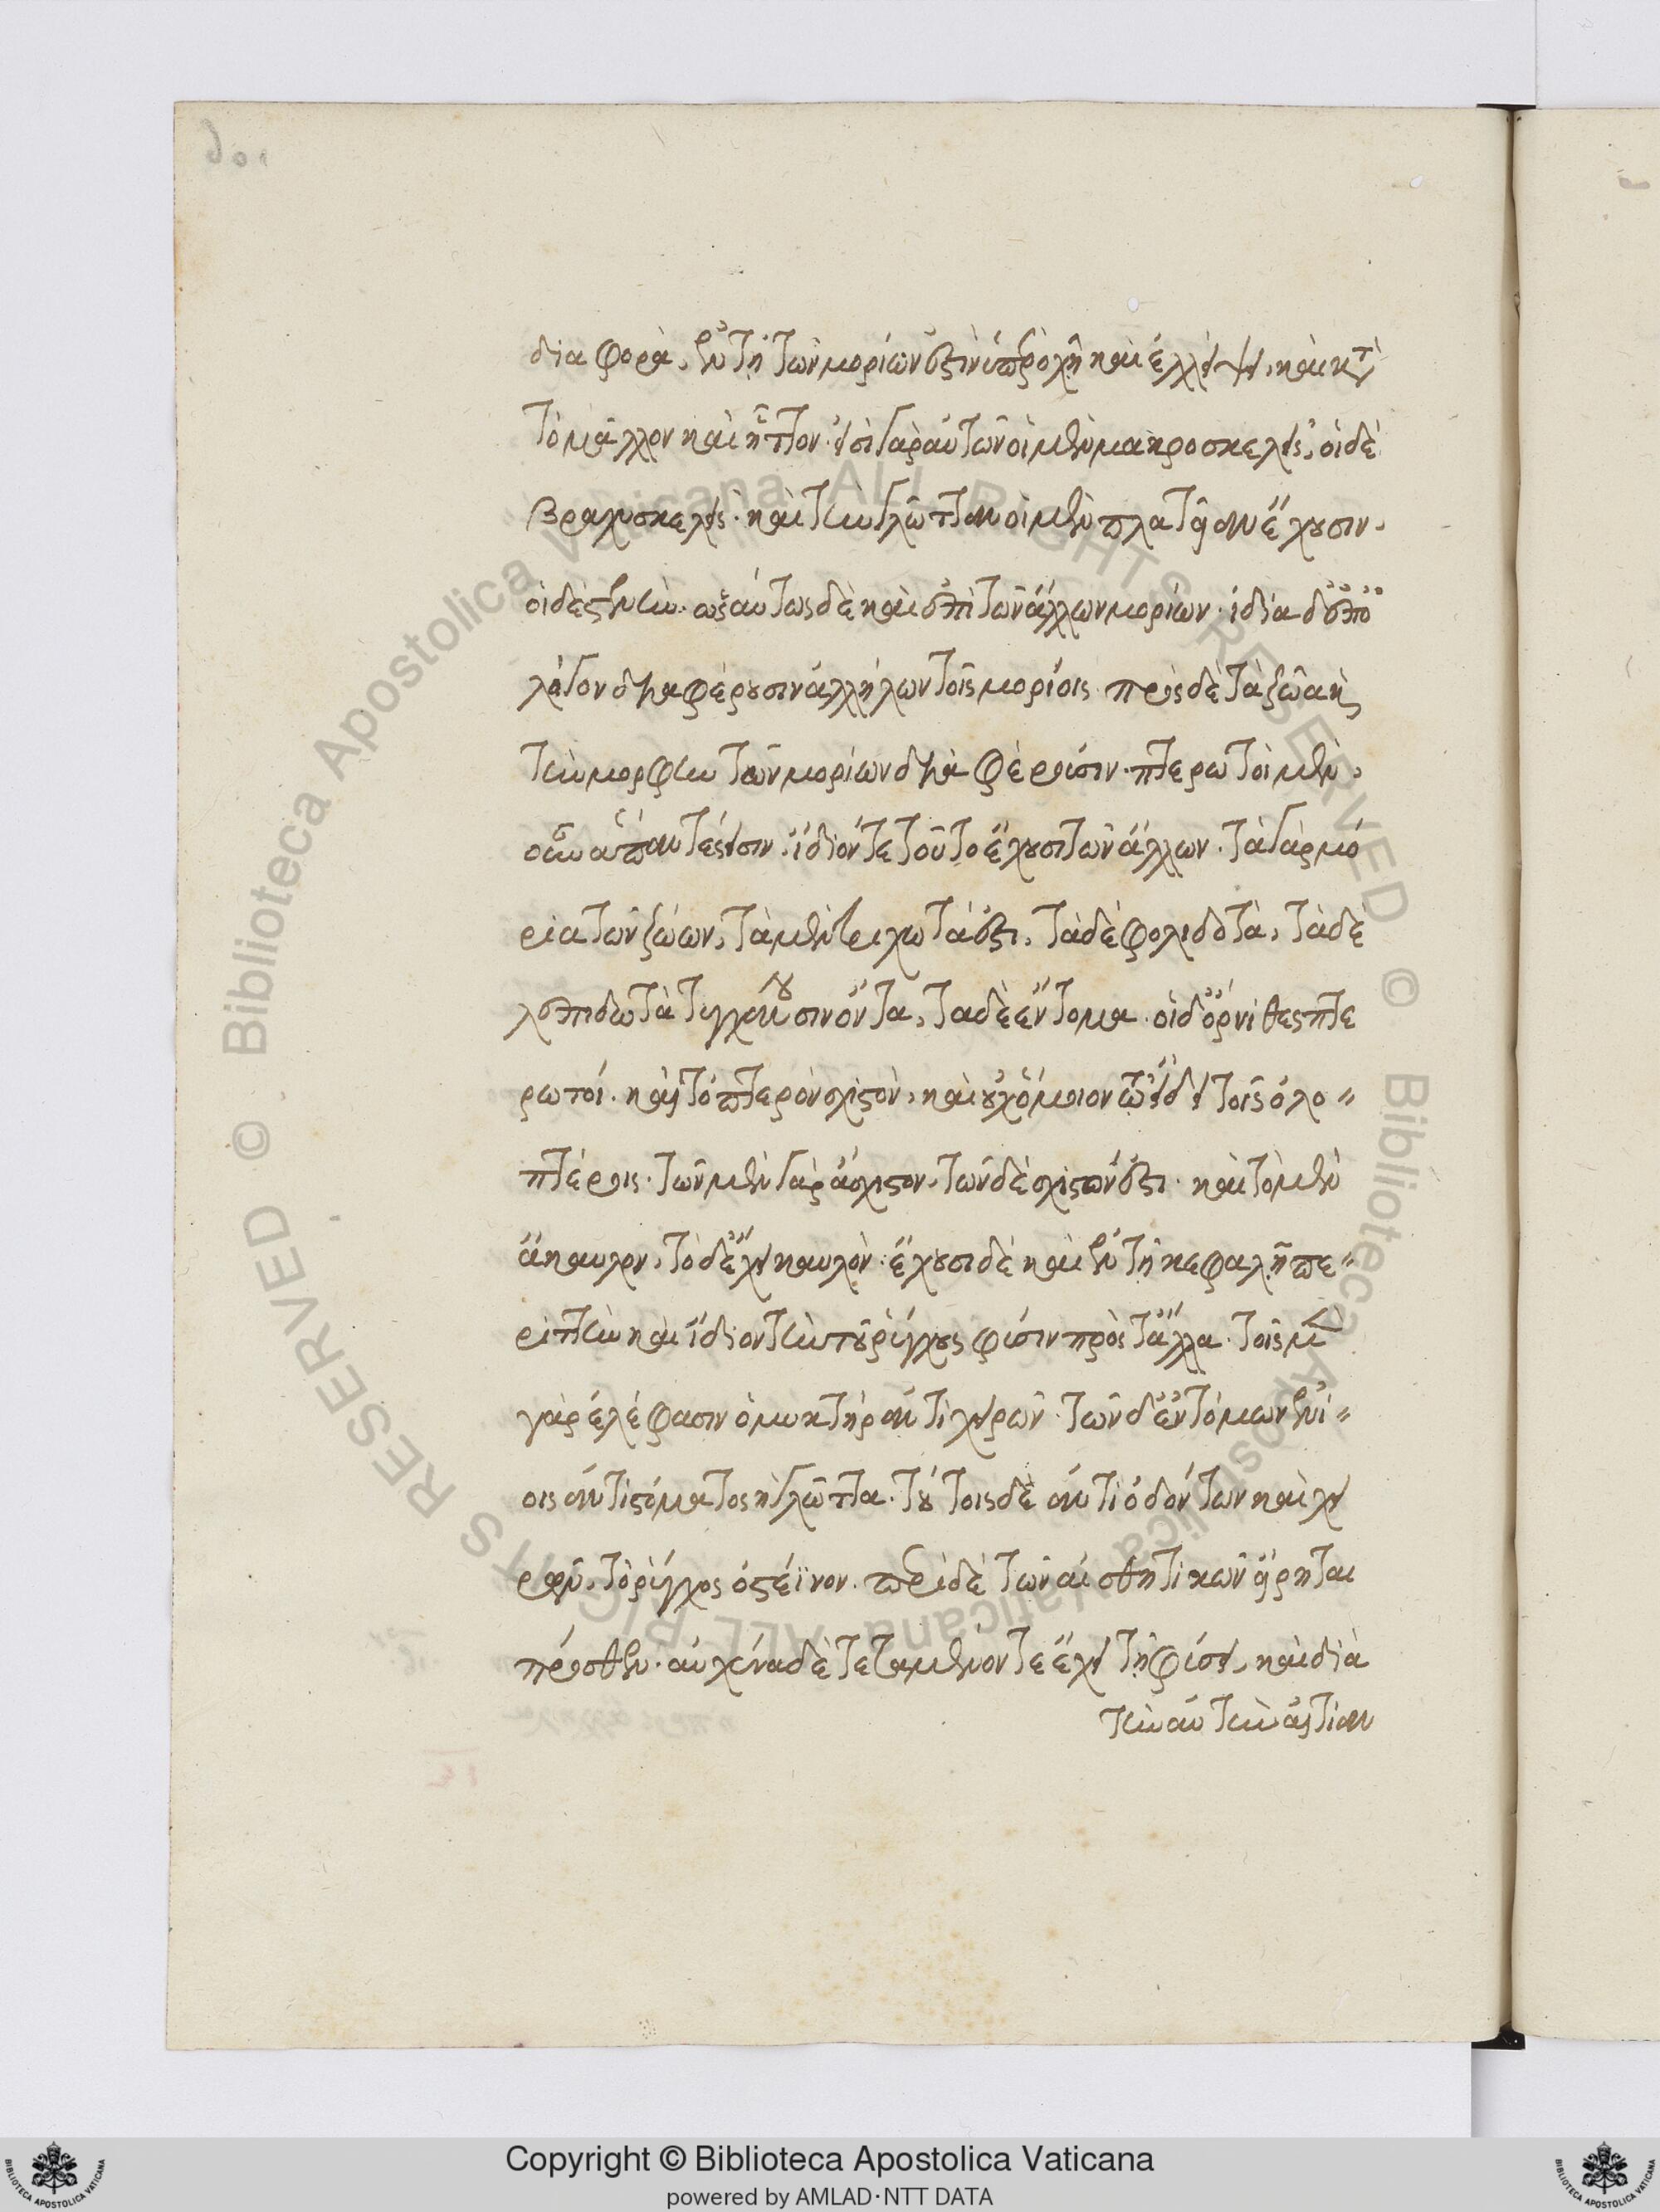 διαφορὰ, ἐν τῇ τῶν μορίων ἐστὶν ὑπεροχῇ καὶ ἐλλείψει, καὶ κατὰ
τὸ μᾶλλον καὶ ἧττον. εἰσὶ γὰρ αὐτῶν οἱ μὲν μακροσκελεῖς, οἱ δὲ
βραχυσκελεῖς. καὶ τὴν γλῶτταν οἱ μὲν πλατεῖαν ἔχουσιν.
οἱ δὲ στενὴν. ὡσαύτως δὲ καὶ ἐπὶ τῶν ἄλλων μορίων. ἰδία δ' ἐπ' ὀ
λίγον διαφέρουσιν ἀλλήλων τοῖς μορίοις. πρὸς δὲ τὰ ζῶα καὶ
τὴν μορφὴν τῶν μορίων διαφέρουσιν. πτερωτοὶ μὲν,
οὖν ἅπαντες εἰσιν. ἴδιόν τε τοῦτο ἔχουσι τῶν ἄλλων. τὰ γὰρ μό
ρια τῶν ζώων, τὰ μὲν τριχωτά ἐστι, τὰ δὲ φολιδοτὰ, τὰ δὲ
λεπιδωτὰ τυγχάνουσιν ὄντα, τὰ δὲ ἔντομα. οἱ δ' ὄρνιθες πτε
ρωτοί. καὶ τὸ πτερὸν σχιστὸν, καὶ οὐχ ὅμοιον τῷ εἴδει τοῖς ὁλο=
πτέροις. τῶν μὲν γὰρ ἄσχιστον, τῶν δὲ σχιστόν ἐστι. καὶ τὸ μὲν
ἄκαυλον, τὸ δ' ἔχει καυλὸν. ἔχουσι δὲ καὶ ἐν τῇ κεφαλῇ πε=
ριττὴν καὶ ἴδιον τὴν τοῦ ῥύγχους φύσιν πρὸς τἄλλα. τοῖς μὲν
γὰρ ἐλέφασιν ὁ μυκτὴρ ἀντὶ χειρῶν. τῶν δ' ἐντόμων ἐνί=
οις ἀντὶ στόματος ἡ γλῶττα. τούτοις δὲ ἀντὶ ὀδόντων καὶ χει
ρῶν, τὸ ῥύγχος ὀστέϊνον. περὶ δὲ τῶν αἰσθητικῶν εἴρηται
πρόσθεν. αὐχένα δὲ τεταμένον τε ἔχει τῇ φύσει, καὶ διὰ
τὴν αὐτὴν αἰτίαν
Copyright © Biblioteca Apostolica Vaticana
powered by AMLAD·NTT DATA